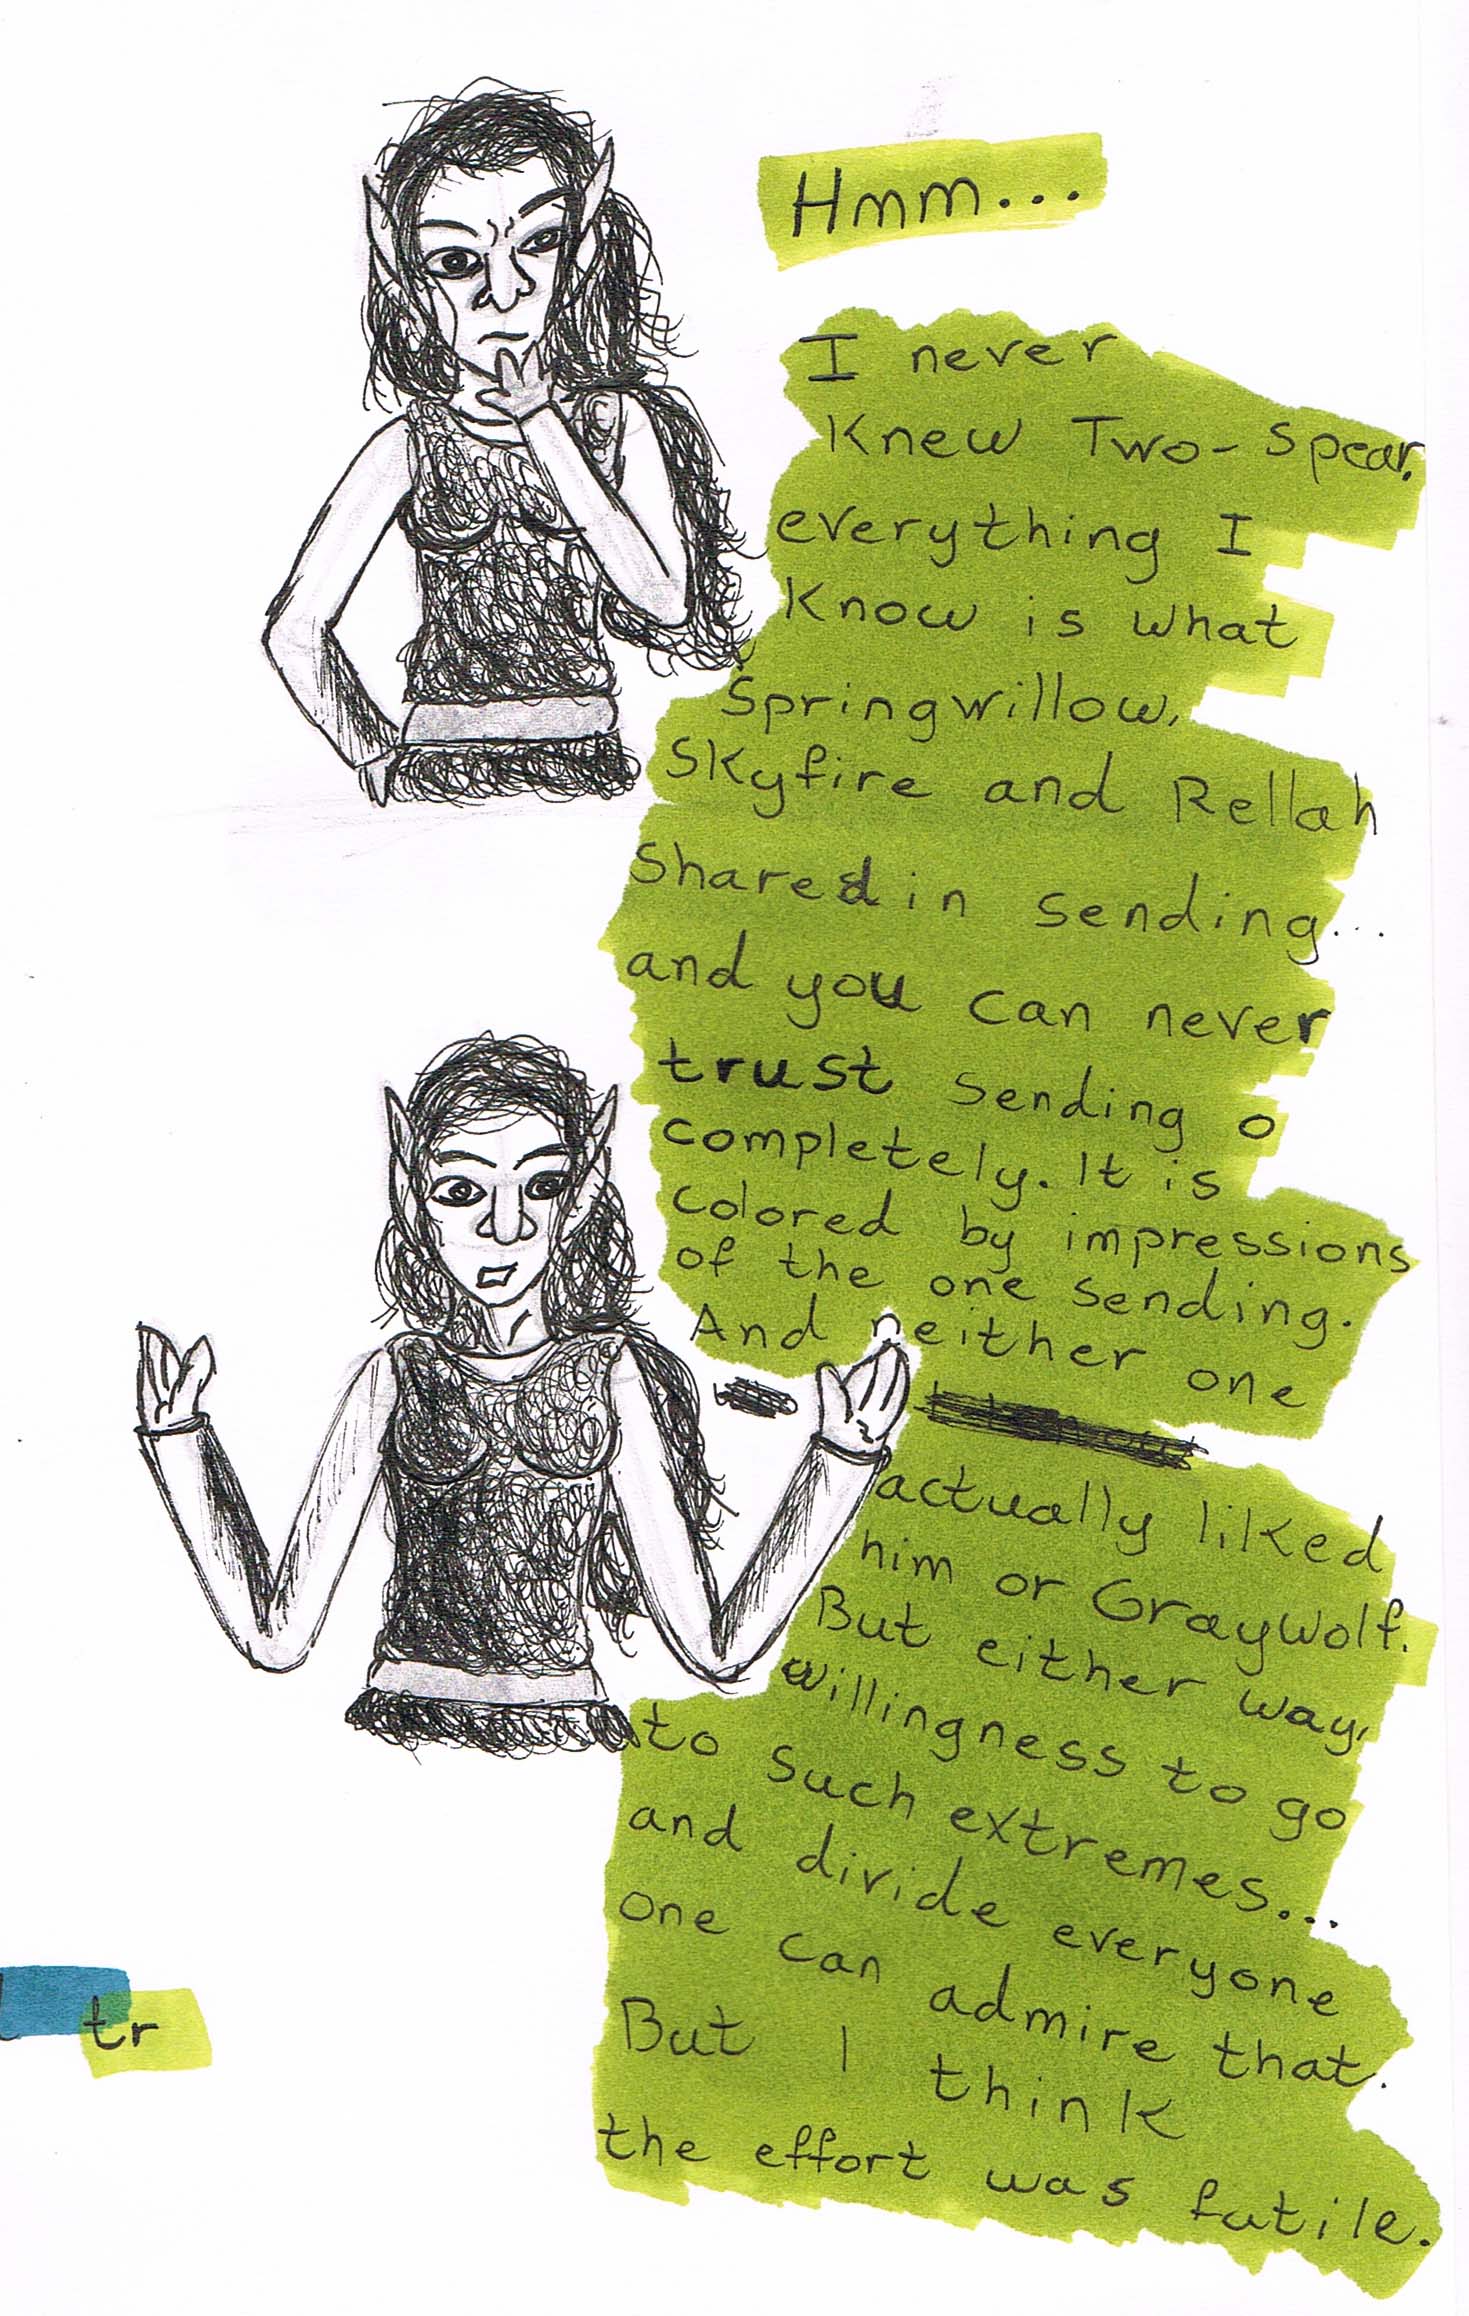 Hmm...
I never
Knew Two-Spear,
everything I
Know is what
Springwillow,
Skyfire and Rellah
Shared in sending...
and you can never
trust sending o
completely. It is
colored by impressions
of the one sending.
And neither one
actually liked
him or Graywolf.
But either way,
willingness to go
to such extremes...
and divide everyone
one can admire that.
But I think
the effort was futile.
tr